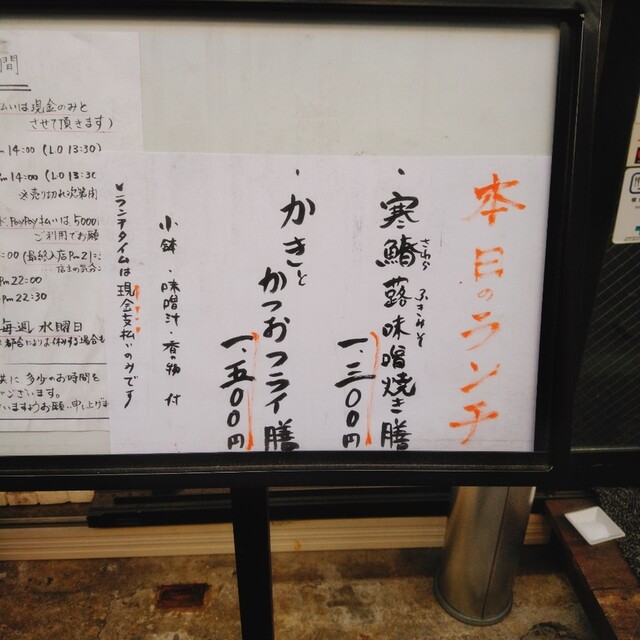 本日のランチ
・寒鰆蕗味噌焼き膳
さわら ふきみそ
一、三〇〇円
・かきとかつおフライ膳
一、五〇〇円
小鉢・味噌汁・香の物 付
※ランチタイムは現金支払いのみです
間
払いは現金のみと
させて頂きます)
14:00 (LO 13:30)
14:00 (LO 13:30
※売り切れ次第閉
PayPay払いは5000
ご利用でお願
:00 (最終入店Pm21:
Pm 22:00
Pm 22:30
毎週 水曜日
都合により休みする場合も
供に 多少のお時間を
ございます。
いますようお願い申し上げま